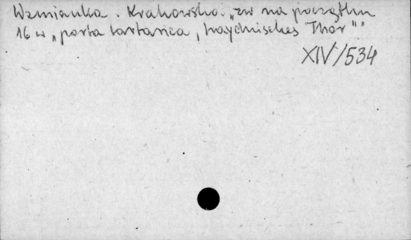 Wzmianka. Krakowsko. „zw na początku
16 w „porta tartarica, haydnisches Thor"."
XIV/534